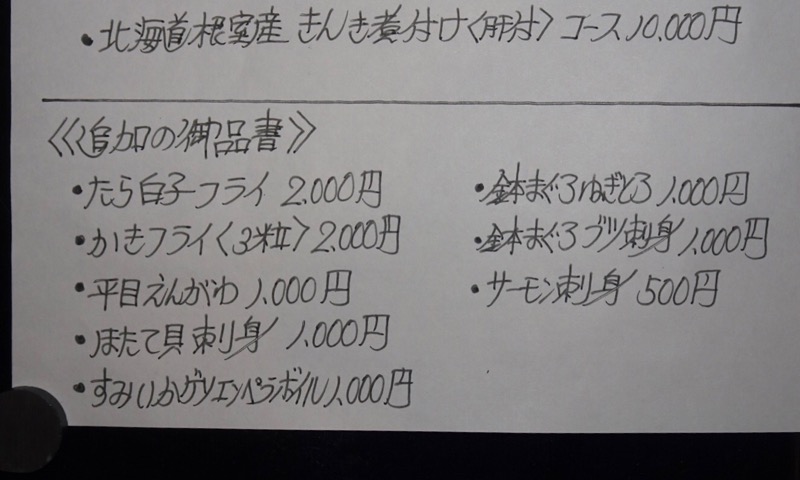 ・北海道根室産 きんき煮付け〈肝付〉コース 10,000円
《追加の御品書》
・たら白子フライ 2,000円
・かきフライ〈3粒〉2,000円
・平目えんがわ 1,000円
・ほたて貝刺身 1,000円
・すみいかゲソエンペラボイル 1,000円
・鉢まぐろねぎとろ 1,000円
・鉢まぐろブツ刺身 1,000円
・サーモン刺身 500円